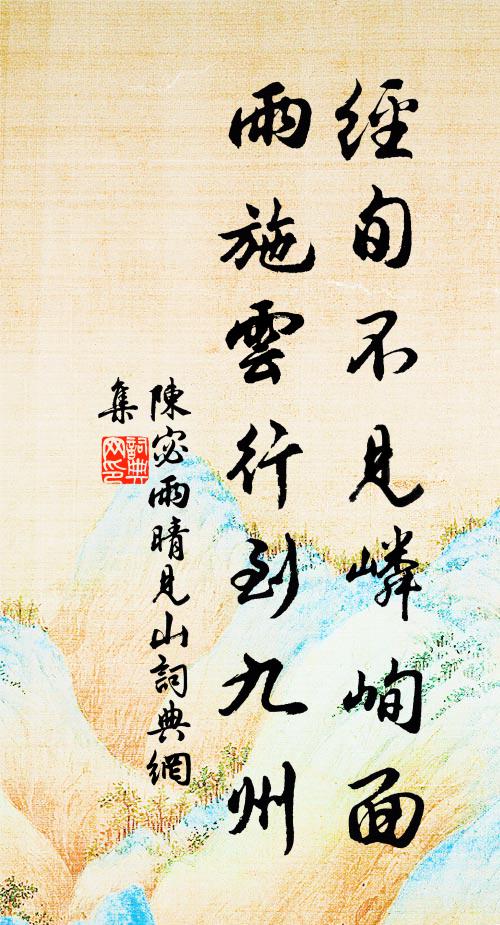 經旬不見嶙峋面
雨施雲行到九州
陳宓雨晴見山詞典網
集
詞典网印